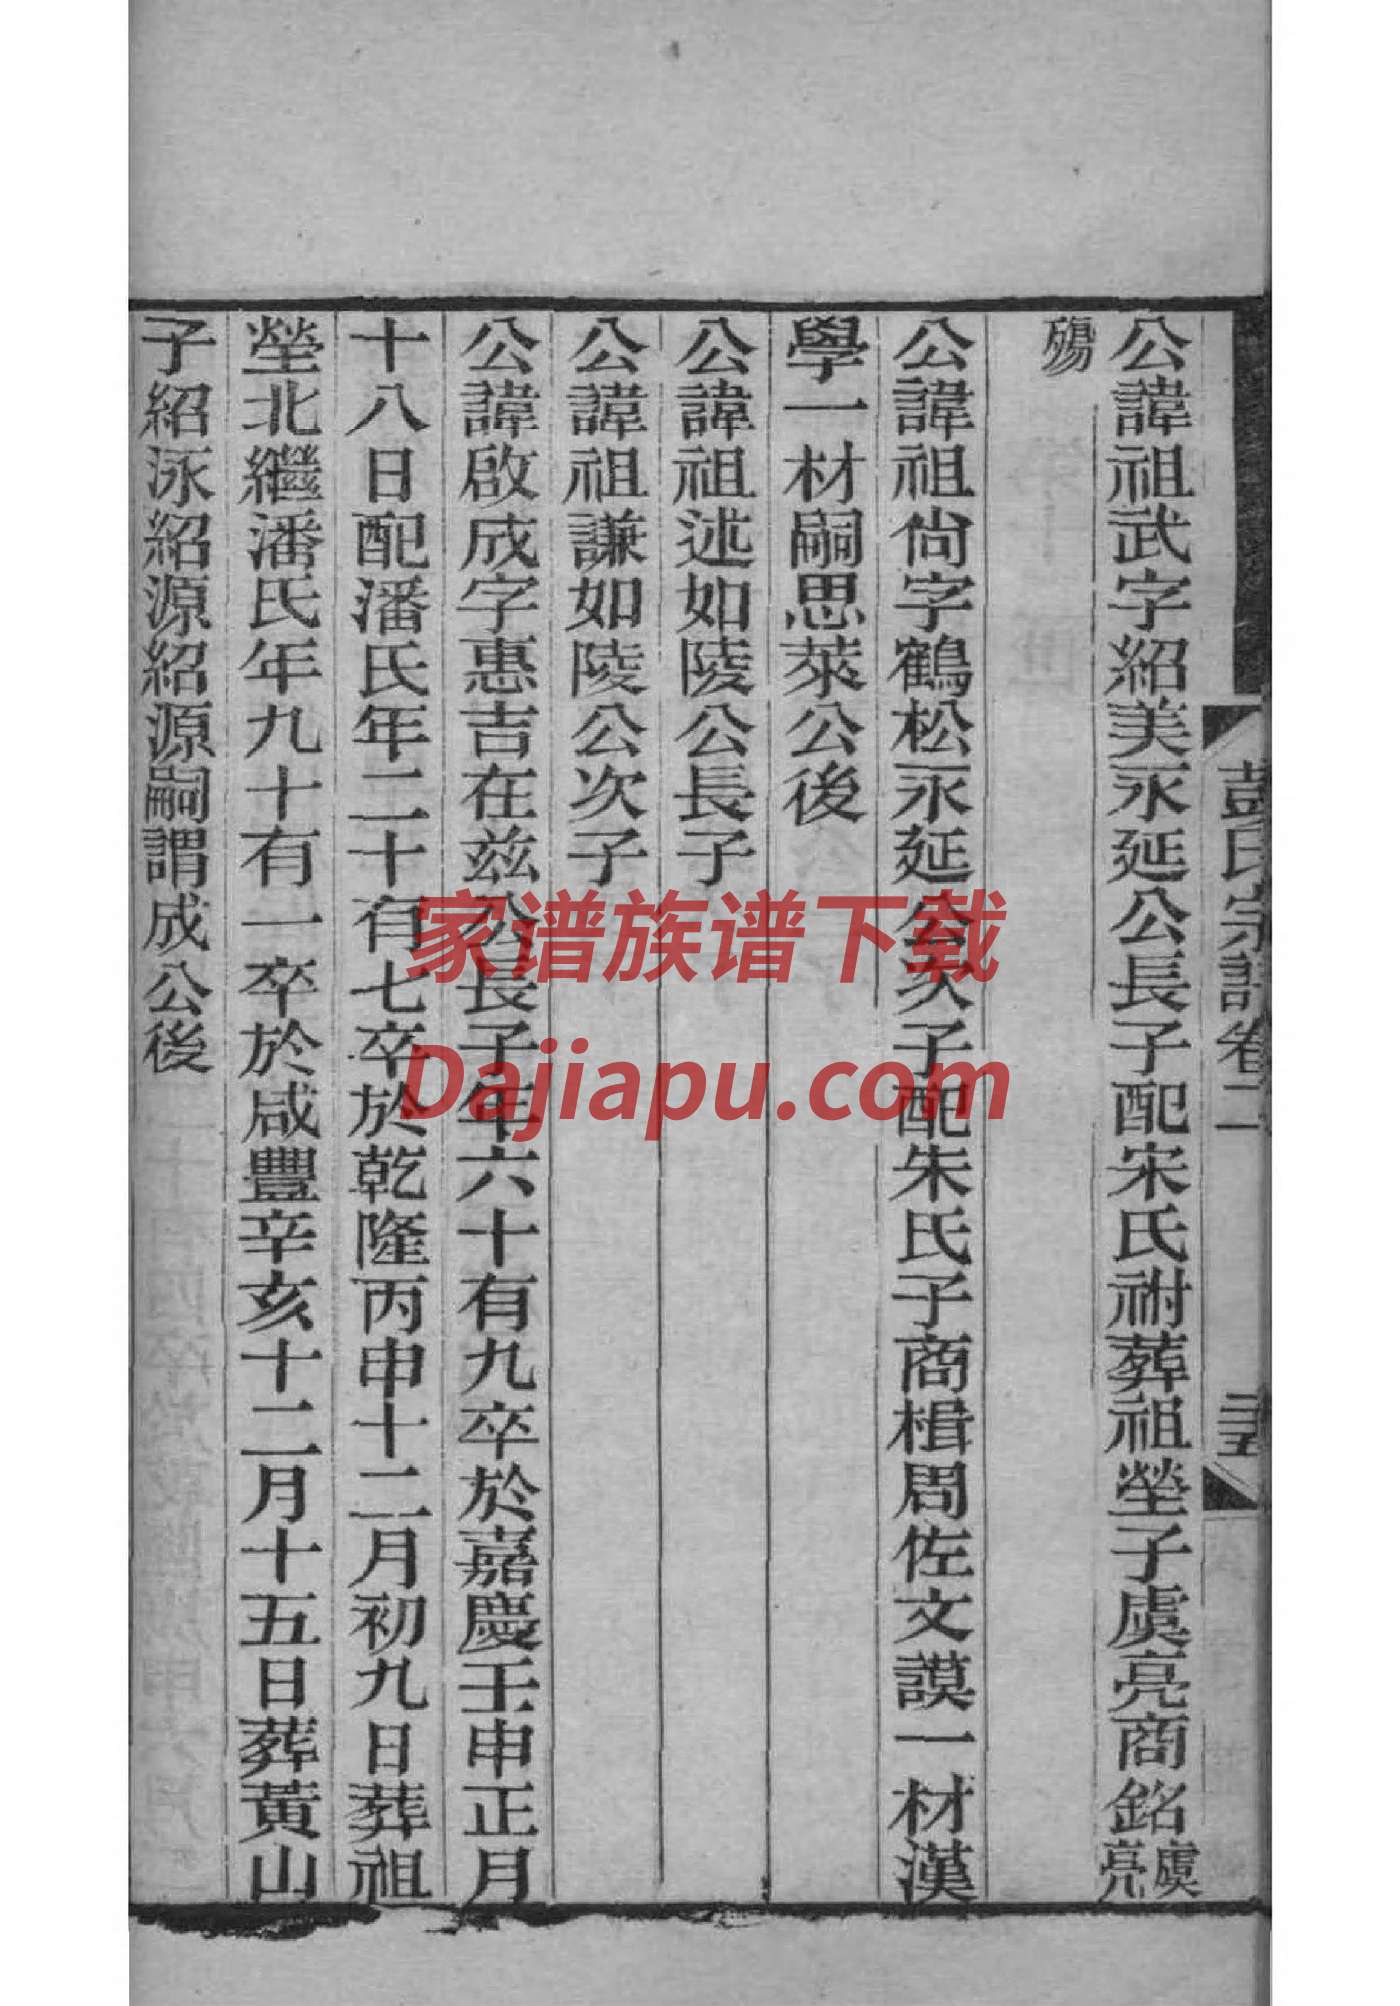 彭氏宗譜卷二 二五
公諱祖武字紹美永延公長子配宋氏祔葬祖塋子虞亮商銘虞亮
殤
公諱祖尙字鶴松永延公次子配朱氏子商楫周佐文謨一材漢
學一材嗣思萊公後
公諱祖述如陵公長子
公諱祖謙如陵公次子
公諱啟成字惠吉在兹公長子年六十有九卒於嘉慶壬申正月
十八日配潘氏年二十有七卒於乾隆丙申十二月初九日葬祖
塋北繼潘氏年九十有一卒於咸豐辛亥十二月十五日葬黃山
子紹泳紹源紹源嗣謂成公後
家谱族谱下载
Dajiapu.com